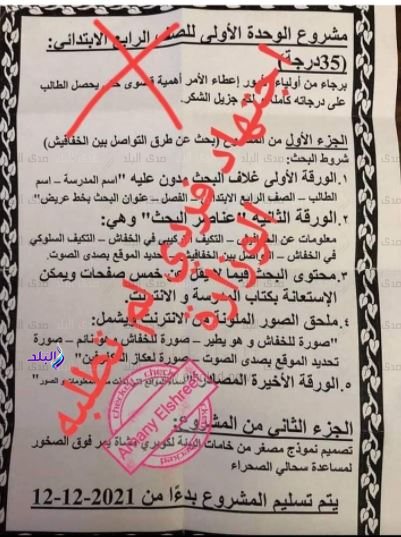 مشروع الوحدة الأولى للصف الرابع الابتدائى:
(35درجة)
برجاء من أولياء الأمور إعطاء الأمر أهمية قصوى حتى يحصل الطالب
على درجاته كاملة ولكم جزيل الشكر.
الجزء الأول من المشروع (بحث عن طرق التواصل بين الخفافيش)
شروط البحث:
١. الورقة الأولى غلاف البحث مدون عليه "اسم المدرسة – اسم
الطالب – الصف الرابع الابتدائى – الفصل – عنوان البحث بخط عريض"
٢. الورقة الثانية "عناصر البحث" وهي:
معلومات عن الخفاش – التكيف التركيبي في الخفاش – التكيف السلوكي
في الخفاش – التواصل بين الخفافيش – تحديد الموقع بصدى الصوت.
٣. محتوى البحث فيما لا يقل عن خمس صفحات ويمكن
الإستعانة بكتاب المدرسة و الانترنت
٤. ملحق الصور الملونة من الانترنت ويشمل:
"صورة للخفاش و هو يطير – صورة للخفاش و هو نائم – صورة
تحديد الموقع بصدى الصوت – صورة لعكاز المكفوفين"
٥. الورقة الأخيرة المصادر
الجزء الثاني من المشروع:
تصميم نموذج مصغر من خامات البيئة لكوبري مشاة يمر فوق الصخور
لمساعدة سحالي الصحراء
يتم تسليم المشروع بدءًا من 2021-12-12
اجتهاد فردي لم تطلبه
الوزارة
checked
Amany Elshreef
checked
صدى البلد